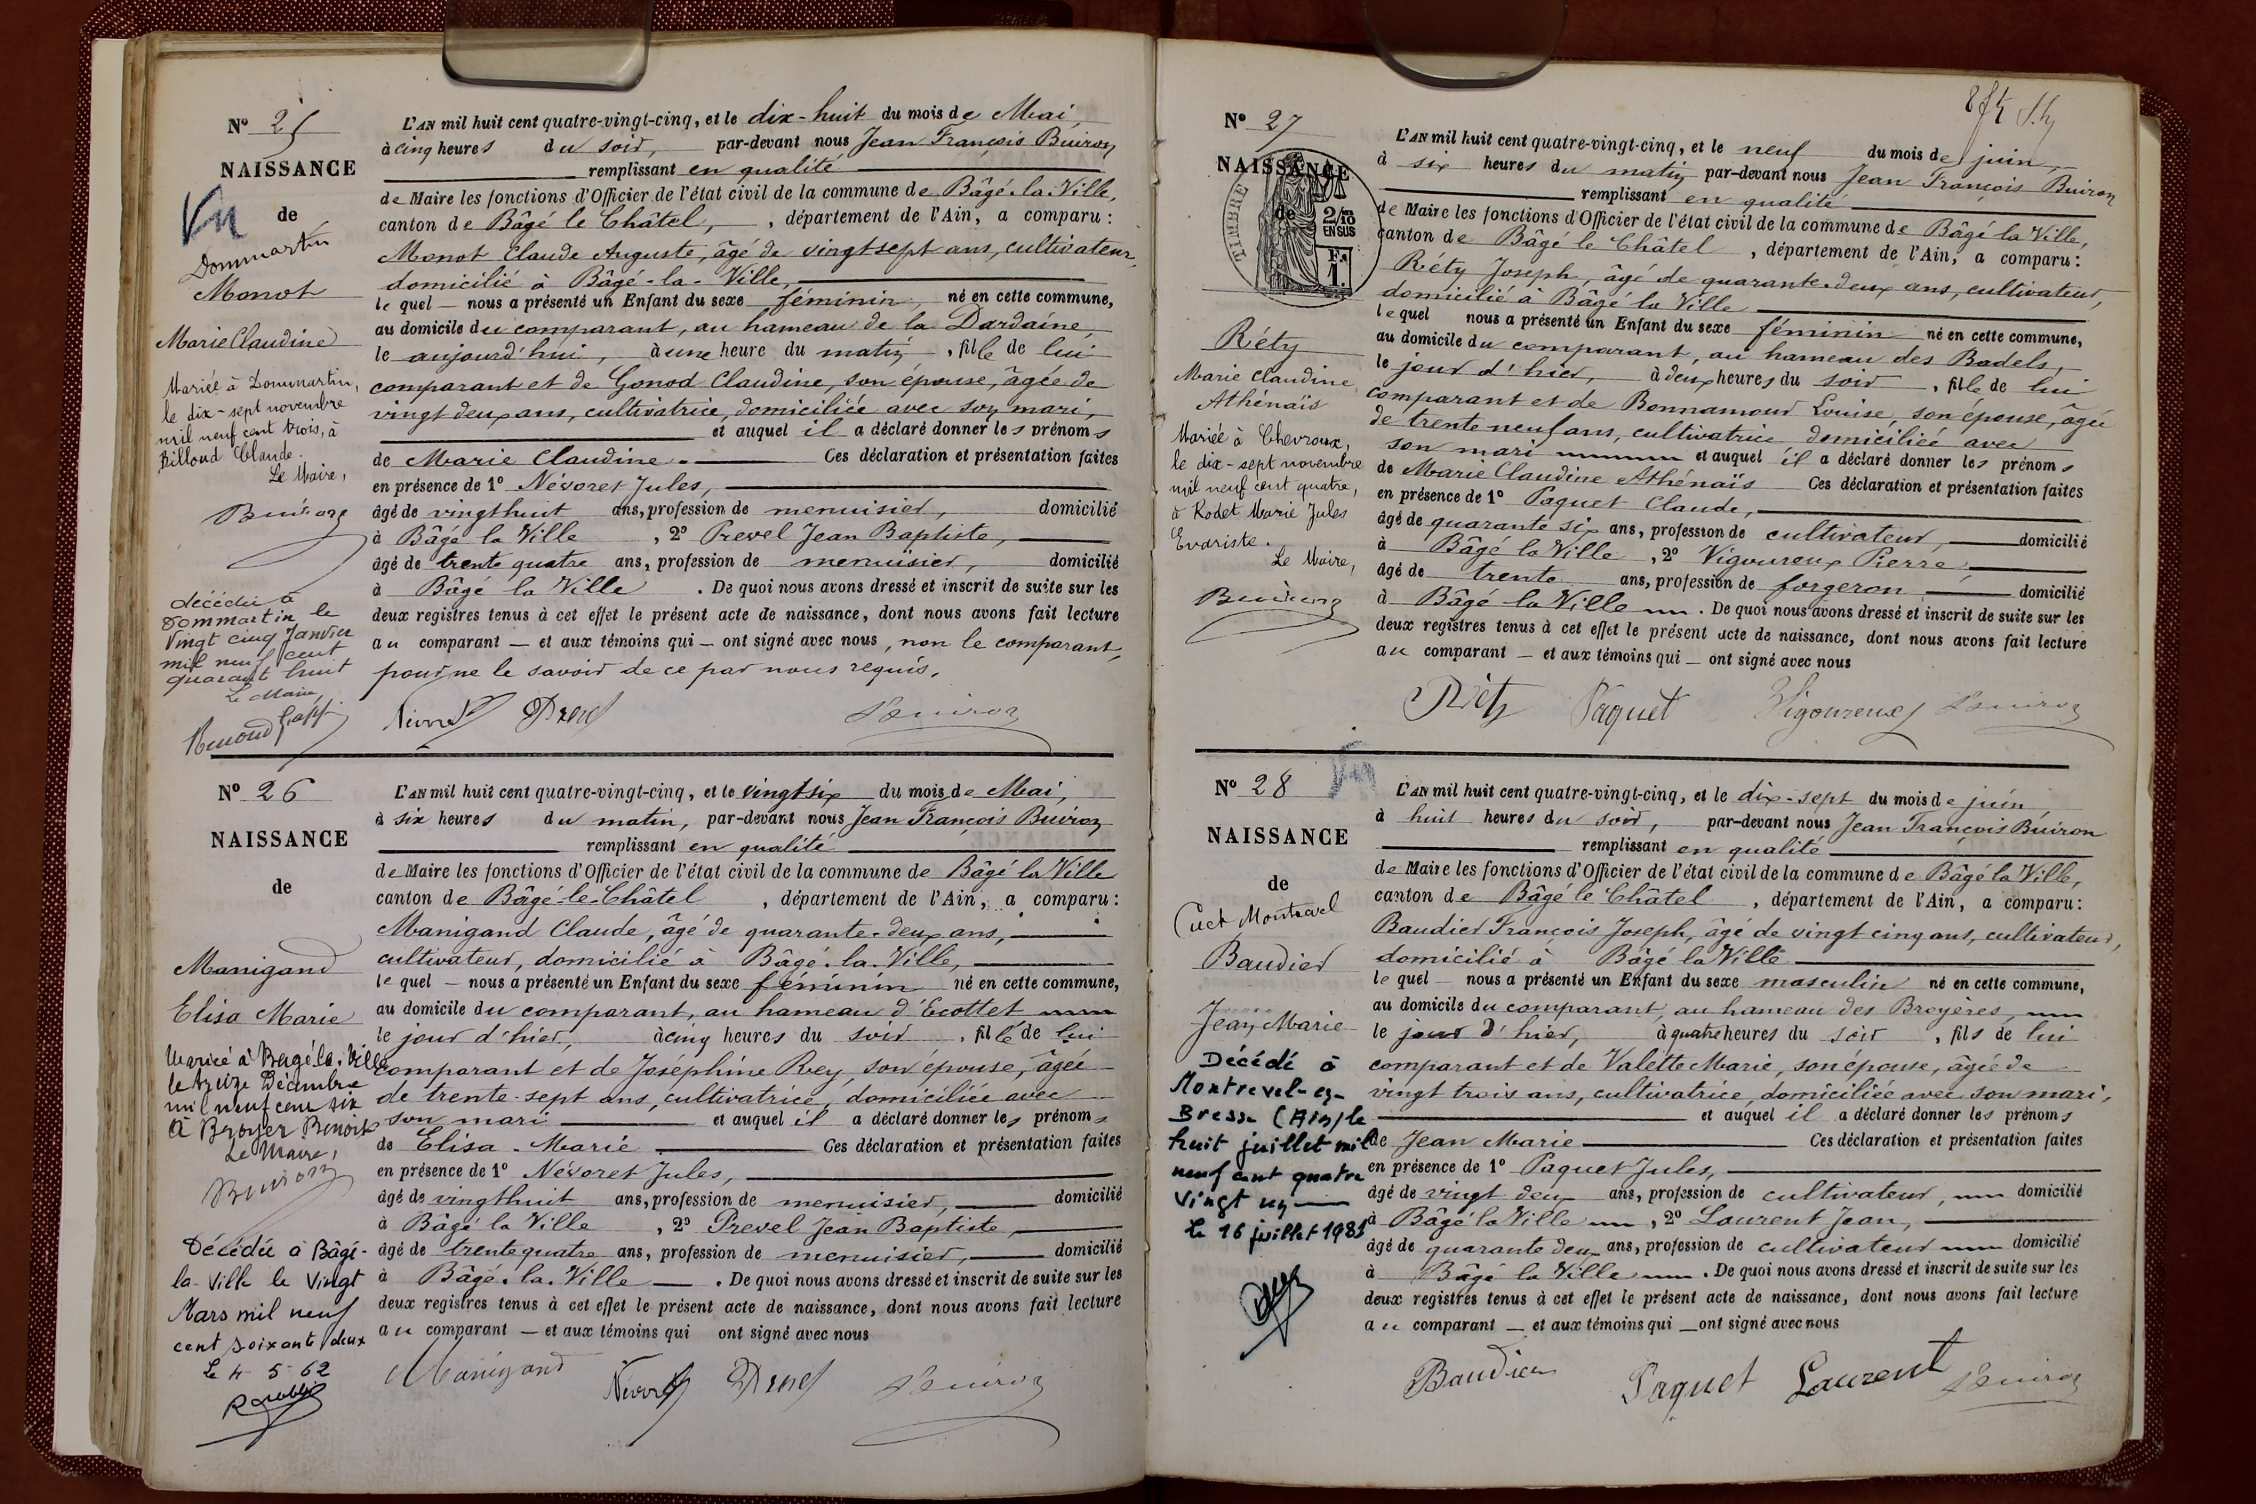 Nº 25
NAISSANCE
Vu
de
Dommartin
Monot
Marie Claudine
Mariée à Dommartin,
le dix-sept novembre
mil neuf cent trois, à
Billoud Claude.
Le Maire,
Buiron
décédée à
Dommartin le
Vingt cinq Janvier
mil neuf cent
quarant huit
Le Maire,
L'AN mil huit cent quatre-vingt-cinq, et le dix-huit du mois de Mai,
à cinq heures du soir, par-devant nous Jean François Buiron
remplissant en qualité
de Maire les fonctions d'Officier de l'état civil de la commune de Bâgé-la-Ville,
canton de Bâgé le Châtel, , département de l'Ain, a comparu :
Monot Claude Auguste, âgé de vingt sept ans, cultivateur,
domicilié à Bâgé-la-Ville,
le quel — nous a présenté un Enfant du sexe féminin, né en cette commune,
au domicile du comparant, au hameau de la Dardaine,
le aujourd'hui, à une heure du matin , fille de lui
comparant et de Gonod Claudine, son épouse, âgée de
vingt deux ans, cultivatrice, domiciliée avec son mari,
et auquel il a déclaré donner les prénoms
de Marie Claudine. Ces déclaration et présentation faites
en présence de 1º Névoret Jules,
âgé de vingt huit ans, profession de menuisier, domicilié
à Bâgé la Ville , 2º Prevel Jean Baptiste,
âgé de trente quatre ans, profession de menuisier, domicilié
à Bâgé la Ville . De quoi nous avons dressé et inscrit de suite sur les
deux registres tenus à cet effet le présent acte de naissance, dont nous avons fait lecture
au comparant — et aux témoins qui — ont signé avec nous, non le comparant,
pour ne le savoir de ce par nous requis.
Névoret Prevel Buiron
Nº 26
NAISSANCE
de
Manigand
Elisa Marie
Mariée à Bagé la Ville
le treize Décembre
mil neuf cent six
à Broyer Benoit
Le Maire,
Buiron
Décédée à Bâgé-
la-Ville le Vingt
Mars mil neuf
cent soixante deux
Le 4-5-62
L'AN mil huit cent quatre-vingt-cinq, et le vingt six du mois de Mai,
à six heures du matin, par-devant nous Jean François Buiron
remplissant en qualité
de Maire les fonctions d'Officier de l'état civil de la commune de Bâgé la Ville
canton de Bâgé-le-Châtel , département de l'Ain, a comparu :
Manigand Claude, âgé de quarante-deux ans,
cultivateur, domicilié à Bâgé-la-Ville,
le quel — nous a présenté un Enfant du sexe féminin né en cette commune,
au domicile du comparant, au hameau d'Ecottet
le jour d'hier, à cinq heures du soir , fille de lui
comparant et de Joséphine Rey, son épouse, âgée
de trente-sept ans, cultivatrice, domiciliée avec
son mari et auquel il a déclaré donner les prénoms
de Elisa-Marie Ces déclaration et présentation faites
en présence de 1º Névoret Jules,
âgé de vingt huit ans, profession de menuisier, domicilié
à Bâgé la Ville , 2º Prevel Jean Baptiste,
âgé de trente quatre ans, profession de menuisier, domicilié
à Bâgé-la-Ville — . De quoi nous avons dressé et inscrit de suite sur les
deux registres tenus à cet effet le présent acte de naissance, dont nous avons fait lecture
au comparant — et aux témoins qui ont signé avec nous
Manigand Névoret Prevel Buiron
Nº 27
NAISSANCE
de
TIMBRE
2/10 EN SUS
Fr. 1.
Réty
Marie Claudine
Athénaïs
Mariée à Chevroux,
le dix-sept novembre
mil neuf cent quatre,
à Rodet Marie Jules
Evariste.
Le Maire,
Buiron
L'AN mil huit cent quatre-vingt-cinq, et le neuf du mois de juin,
à six heures du matin par-devant nous Jean François Buiron
remplissant en qualité
de Maire les fonctions d'Officier de l'état civil de la commune de Bâgé la Ville,
canton de Bâgé le Châtel , département de l'Ain, a comparu :
Réty Joseph, âgé de quarante-deux ans, cultivateur,
domicilié à Bâgé la Ville
le quel nous a présenté un Enfant du sexe féminin né en cette commune,
au domicile du comparant, au hameau des Badels,
le jour d'hier, à deux heures du soir , fille de lui
comparant et de Bonnamour Louise, son épouse, âgée
de trente neuf ans, cultivatrice domiciliée avec
son mari et auquel il a déclaré donner les prénoms
de Marie Claudine Athénaïs Ces déclaration et présentation faites
en présence de 1º Paquet Claude,
âgé de quarante six ans, profession de cultivateur, domicilié
à Bâgé la Ville , 2º Vigoureux Pierre,
âgé de trente ans, profession de forgeron domicilié
à Bâgé la Ville . De quoi nous avons dressé et inscrit de suite sur les
deux registres tenus à cet effet le présent acte de naissance, dont nous avons fait lecture
au comparant — et aux témoins qui — ont signé avec nous
Réty Paquet Vigoureux Buiron
Nº 28 Vu
NAISSANCE
de
Cuet Montrevel
Baudier
Jean Marie
Décédé à
Montrevel-en-
Bresse (Ain) le
huit juillet mil
neuf cent quatre
vingt un
le 16 juillet 1981
L'AN mil huit cent quatre-vingt-cinq, et le dix-sept du mois de juin,
à huit heures du soir, par-devant nous Jean François Buiron
remplissant en qualité
de Maire les fonctions d'Officier de l'état civil de la commune de Bâgé la Ville,
canton de Bâgé le Châtel , département de l'Ain, a comparu :
Baudier François Joseph, âgé de vingt cinq ans, cultivateur,
domicilié à Bâgé la Ville
le quel — nous a présenté un Enfant du sexe masculin né en cette commune,
au domicile du comparant, au hameau des Broyères,
le jour d'hier, à quatre heures du soir , fils de lui
comparant et de Valette Marie, son épouse, âgée de
vingt trois ans, cultivatrice, domiciliée avec son mari,
et auquel il a déclaré donner les prénoms
de Jean Marie Ces déclaration et présentation faites
en présence de 1º Paquet Jules,
âgé de vingt deux ans, profession de cultivateur, domicilié
à Bâgé la Ville , 2º Laurent Jean,
âgé de quarante deux ans, profession de cultivateur domicilié
à Bâgé la Ville . De quoi nous avons dressé et inscrit de suite sur les
deux registres tenus à cet effet le présent acte de naissance, dont nous avons fait lecture
au comparant — et aux témoins qui — ont signé avec nous
Baudier Paquet Laurent Buiron